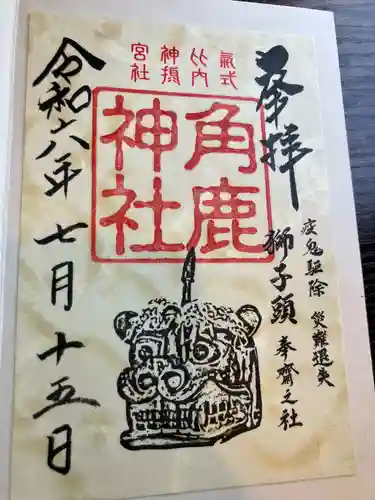 奉拝
疫鬼駆除 災難退失
獅子頭 奉齋之社
式内
氣比
神宮
摂社
角鹿
神社
令和六年七月十五日